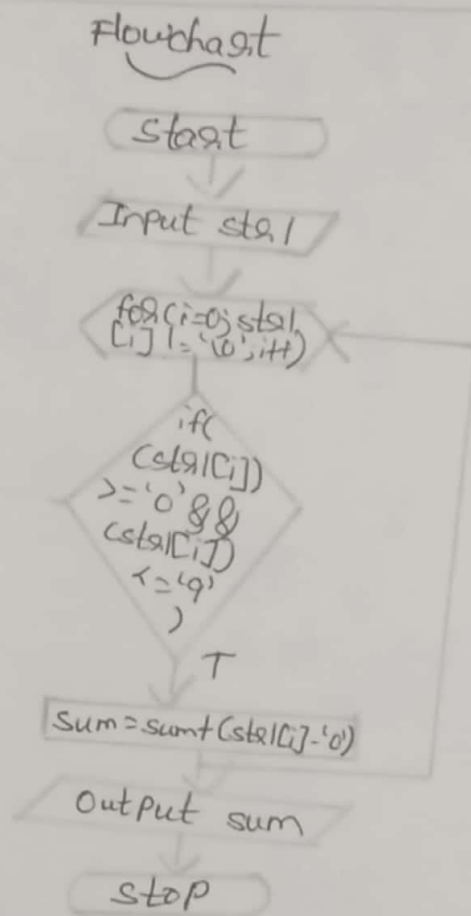 Flowchart
Start
Input str1
for(i=0; str1
[i] != '\0'; i++)
if(
(str1[i])
>='0' &&
(str1[i])
<='9'
)
T
sum = sum + (str1[i]-'0')
output sum
stop